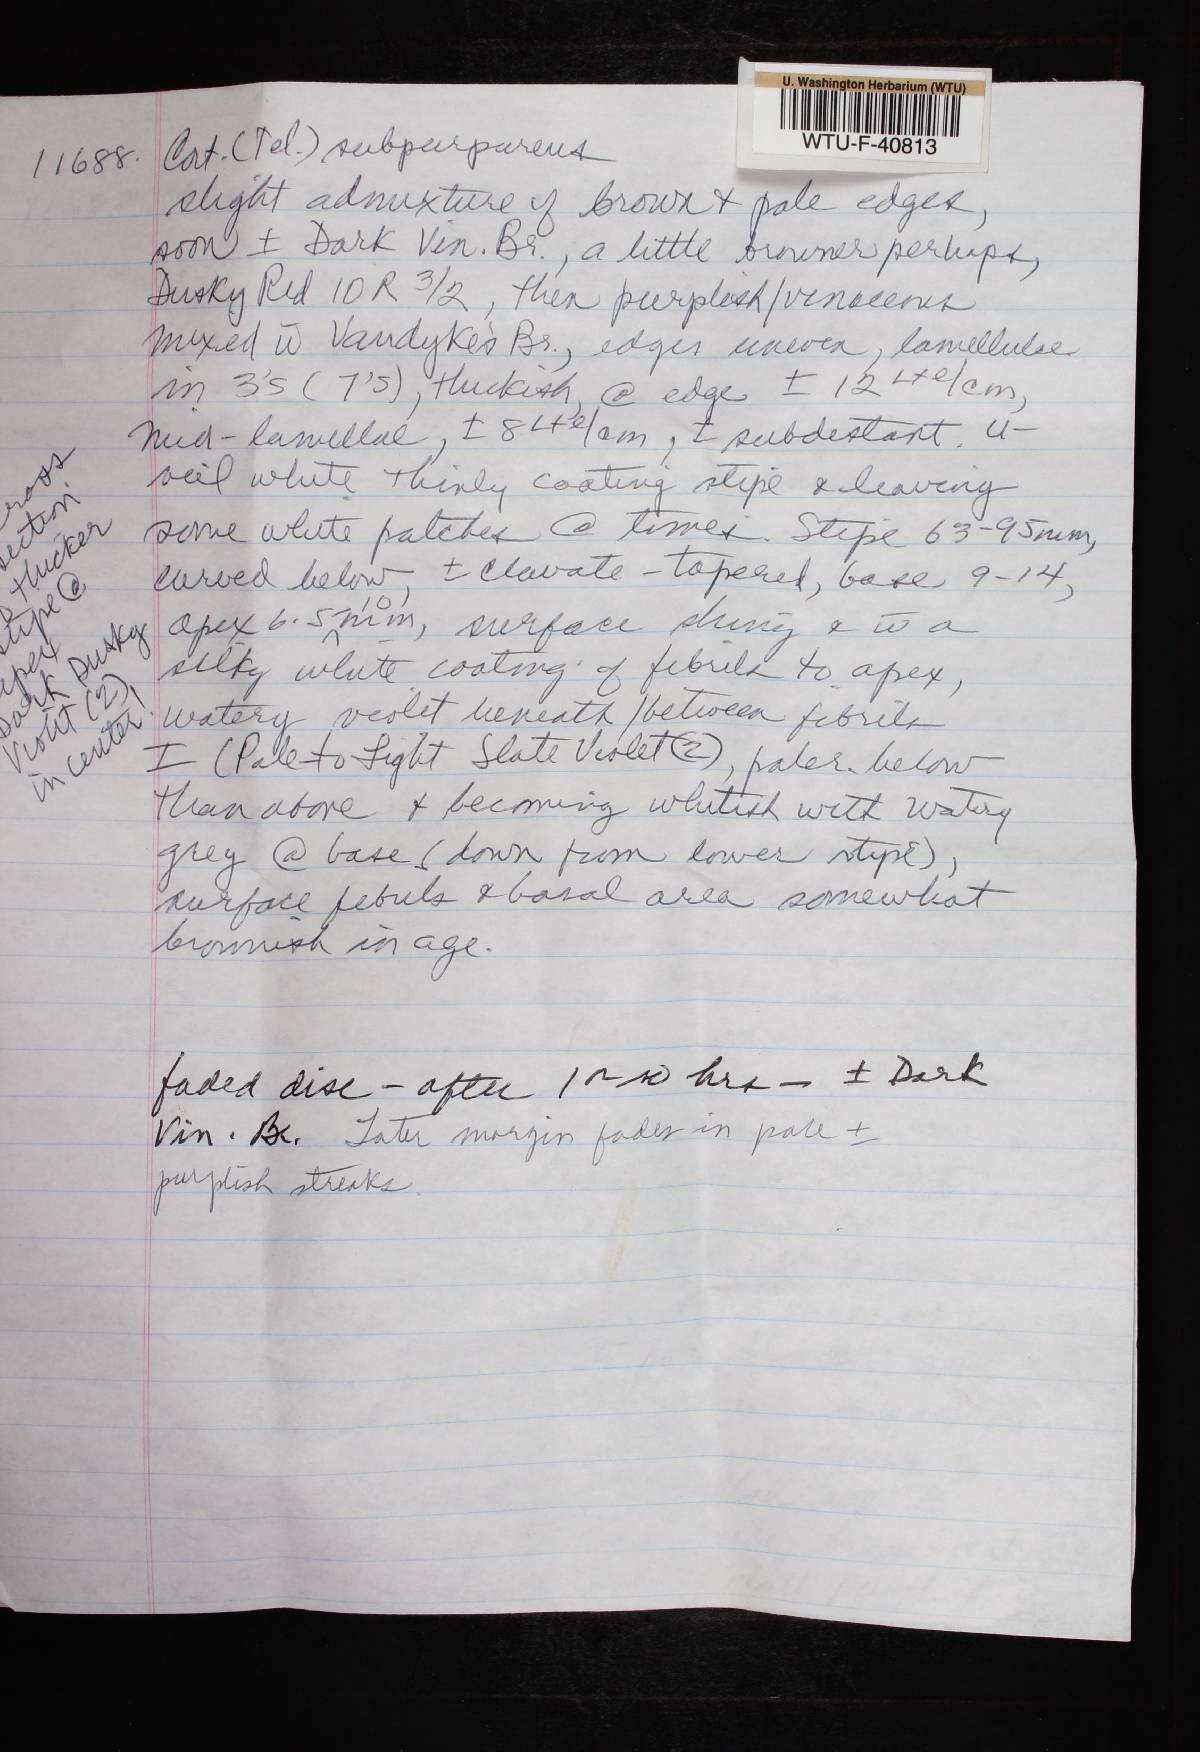 U. Washington Herbarium (WTU)
WTU-F-40813
11688. Cort. (Tel.) subpurpureus
slight admixture of brown & pale edges,
soon ± Dark Vin. Br., a little browner perhaps,
Dusky Red 10 R 3/2, then purplish/vinaceous
mixed w̄ Vandyke's Br., edges uneven, lamellulae
in 3's (7's), thickish, @ edge ± 12 L+e/cm,
mid-lamellae, ± 8 L+e/cm, ± subdistant. U-
veil white thinly coating stipe & leaving
some white patches @ times. Stipe 63-95mm,
curved below, ± clavate-tapered, base 9-14,
apex 6.5 mm, surface shiny & w̄ a
silky white coating of fibrils to apex,
watery violet beneath/between fibrils
I (Pale to Light Slate Violet (2)), paler below
than above & becoming whitish with watery
grey @ base (down from lower stipe),
surface fibrils & basal area somewhat
brownish in age.
cross
section
thicker
stipe @
apex
Dark Dusky
Violet (2)
in center!
faded disc - after 1 or so hrs - ± Dark
Vin. Br. Later margin fades in pale ±
purplish streaks.